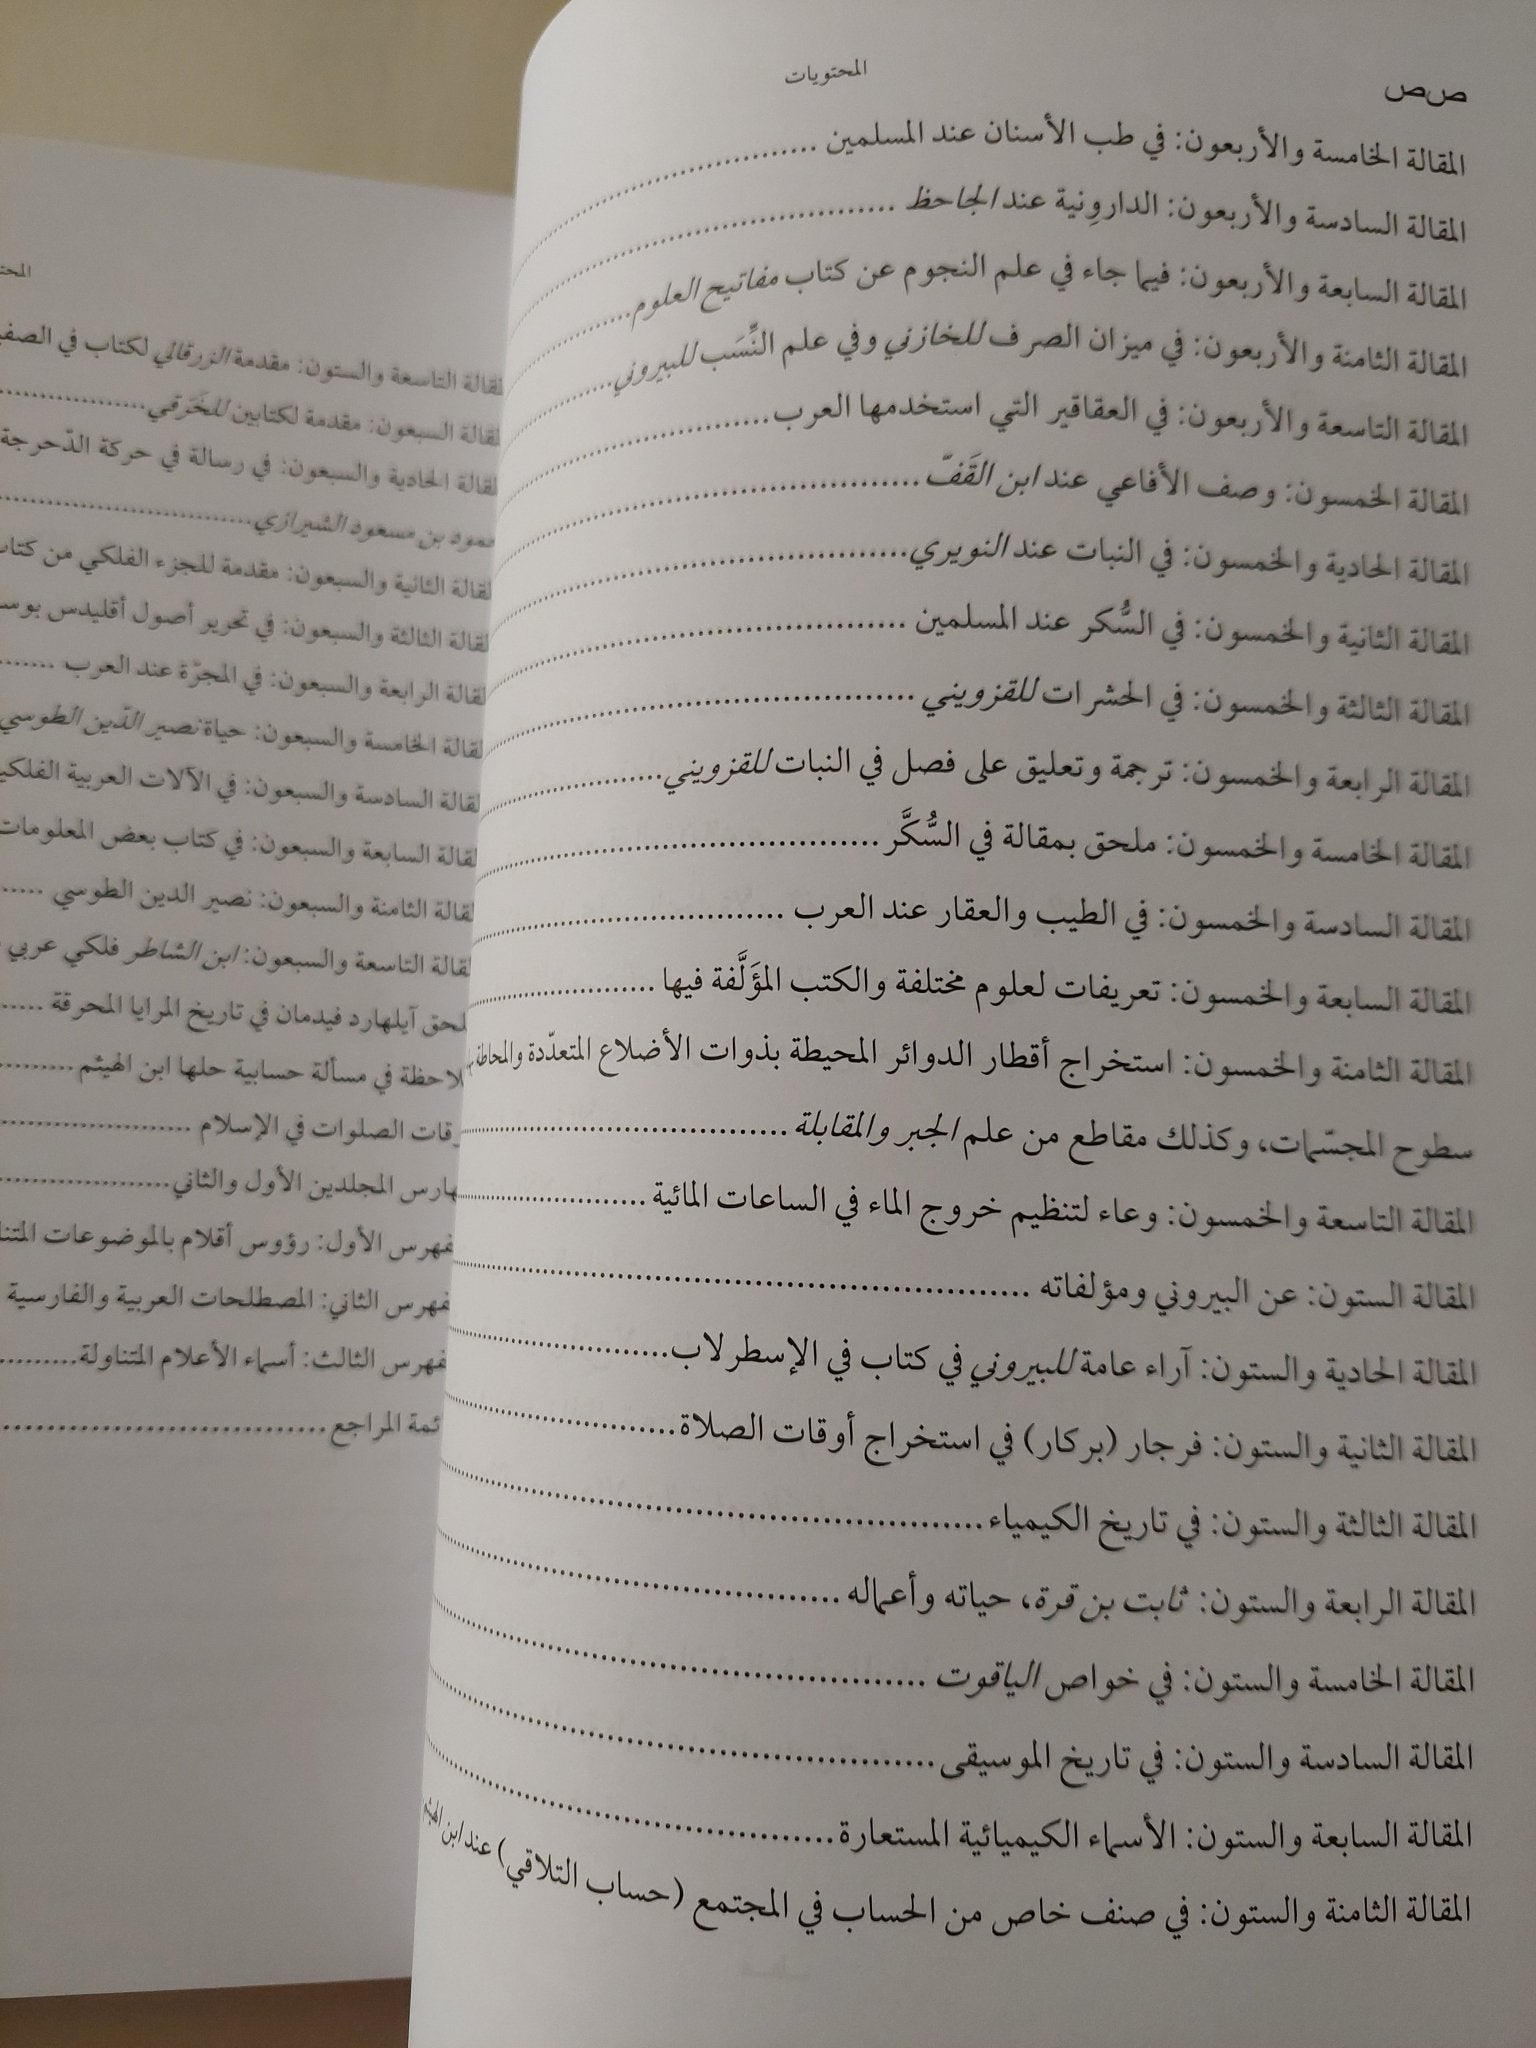 ص‌ص
المحتويات
المقالة الخامسة والأربعون: في طب الأسنان عند المسلمين
المقالة السادسة والأربعون: الداروِنية عند الجاحظ
المقالة السابعة والأربعون: فيما جاء في علم النجوم عن كتاب مفاتيح العلوم
المقالة الثامنة والأربعون: في ميزان الصرف للخازني وفي علم النِّسَب للبيروني
المقالة التاسعة والأربعون: في العقاقير التي استخدمها العرب
المقالة الخمسون: وصف الأفاعي عند ابن القَفّ
المقالة الحادية والخمسون: في النبات عند النويري
المقالة الثانية والخمسون: في السُّكر عند المسلمين
المقالة الثالثة والخمسون: في الحشرات للقزويني
المقالة الرابعة والخمسون: ترجمة وتعليق على فصل في النبات للقزويني
المقالة الخامسة والخمسون: ملحق بمقالة في السُّكَّر
المقالة السادسة والخمسون: في الطيب والعقار عند العرب
المقالة السابعة والخمسون: تعريفات لعلوم مختلفة والكتب المؤَلَّفة فيها
المقالة الثامنة والخمسون: استخراج أقطار الدوائر المحيطة بذوات الأضلاع المتعدّدة والمحاطة
سطوح المجسّمات، وكذلك مقاطع من علم الجبر والمقابلة
المقالة التاسعة والخمسون: وعاء لتنظيم خروج الماء في الساعات المائية
المقالة الستون: عن البيروني ومؤلفاته
المقالة الحادية والستون: آراء عامة للبيروني في كتاب في الإسطرلاب
المقالة الثانية والستون: فرجار (بركار) في استخراج أوقات الصلاة
المقالة الثالثة والستون: في تاريخ الكيمياء
المقالة الرابعة والستون: ثابت بن قرة، حياته وأعماله
المقالة الخامسة والستون: في خواص الياقوت
المقالة السادسة والستون: في تاريخ الموسيقى
المقالة السابعة والستون: الأسماء الكيميائية المستعارة
المقالة الثامنة والستون: في صنف خاص من الحساب في المجتمع (حساب التلاقي) عند ابن الهيثم
التاسعة والستون: مقدمة الزرقالي لكتاب في
السبعون: مقدمة لكتابين للخَرَقي
الحادية والسبعون: في رسالة في حركة الدّحرجة
بن مسعود الشيرازي
الثانية والسبعون: مقدمة للجزء الفلكي من كتاب
الثالثة والسبعون: في تحرير أصول أقليدس
الرابعة والسبعون: في المجرّة عند العرب
الخامسة والسبعون: حياة نصير الدّين الطوسي
السادسة والسبعون: في الآلات العربية
السابعة والسبعون: في كتاب بعض المعلومات
الثامنة والسبعون: نصير الدين الطوسي
التاسعة والسبعون: ابن الشاطر فلكي عربي
آيلهارد فيدمان في تاريخ المرايا المحرقة
في مسألة حسابية حلها ابن الهيثم
الصلوات في الإسلام
المجلدين الأول والثاني
الأول: رؤوس أقلام بالموضوعات
الثاني: المصطلحات العربية والفارسية
الثالث: أسماء الأعلام المتناولة
المراجع